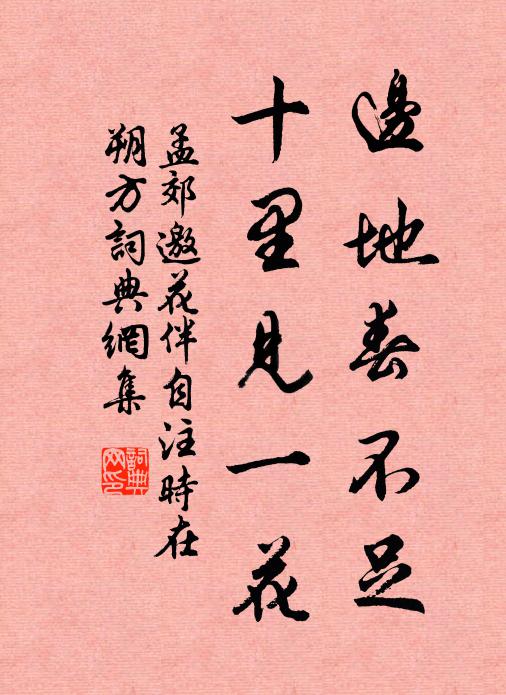 邊地春不足
十里見一花
孟郊邀花伴自注時在
朔方詞典網集
詞典网印